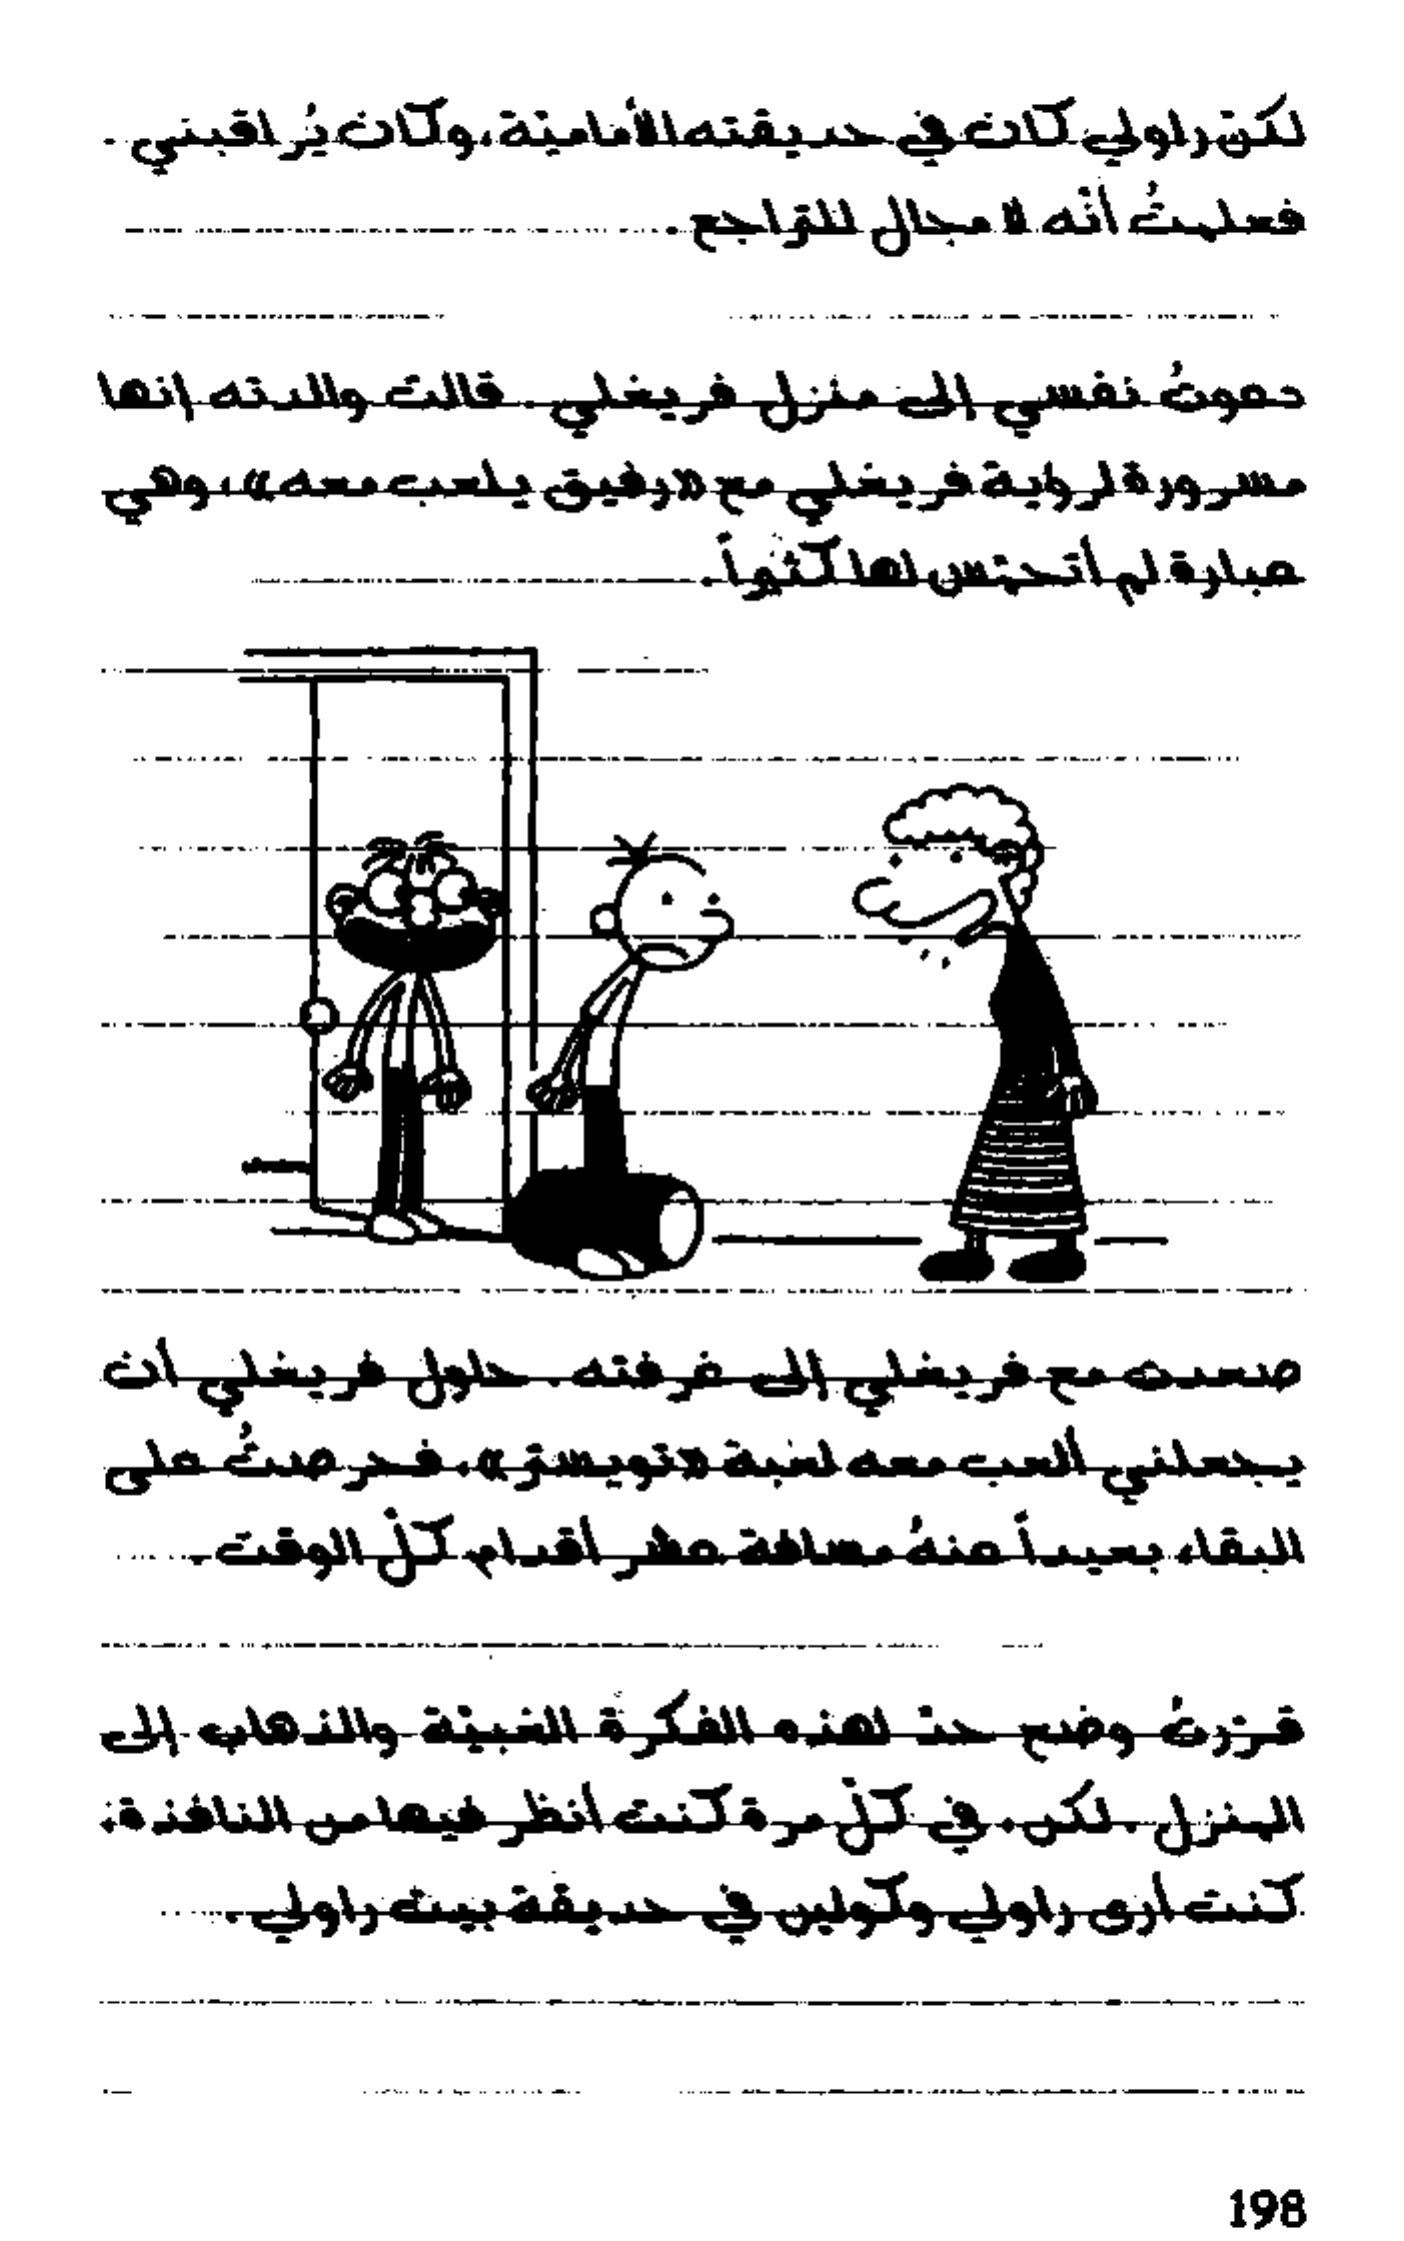 لكنّ راولي كان في حديقته الأماميّة، وكان يُراقبني.
فعلمتُ أنّه لا مجال للتراجع.
دعوتُ نفسي إلى منزل فريغلي. قالت والدته إنها
مسرورة لرؤية فريغلي مع «رفيق يلعب معه»، وهي
عبارة لم أتحمّس لها كثيراً.
صعدت مع فريغلي إلى غرفته. حاول فريغلي أن
يجعلني ألعب معه لعبة «تويستر»، فحرصتُ على
البقاء بعيداً عنهُ مسافة عشر أقدام كلّ الوقت.
قرّرتُ وضع حدّ لهذه الفكرة الغبيّة والذهاب إلى
المنزل. لكن، في كلّ مرة كنت أنظر فيها من النافذة:
كنت أرى راولي وكولين في حديقة بيت راولي.
198